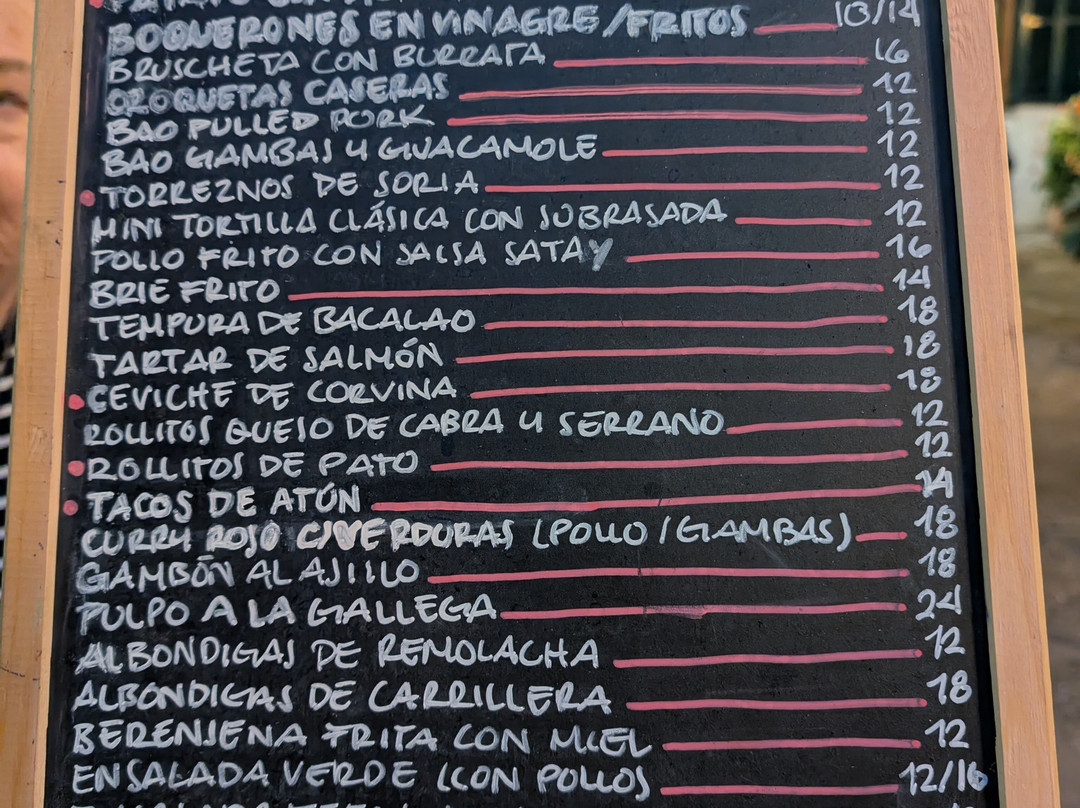 BOQUERONES EN VINAGRE/FRITOS 10/14
BRUSCHETA CON BURRATA 16
CROQUETAS CASERAS 12
BAO PULLED PORK 12
BAO GAMBAS Y GUACAMOLE 12
TORREZNOS DE SORIA 12
MINI TORTILLA CLÁSICA CON SOBRASADA 12
POLLO FRITO CON SALSA SATAY 16
BRIE FRITO 14
TEMPURA DE BACALAO 18
TARTAR DE SALMÓN 18
CEVICHE DE CORVINA 18
ROLLITOS QUESO DE CABRA Y SERRANO 12
ROLLITOS DE PATO 12
TACOS DE ATÚN 14
CURRY ROJO C/VERDURAS (POLLO/GAMBAS) 18
GAMBÓN AL AJILLO 18
PULPO A LA GALLEGA 24
ALBONDIGAS DE REMOLACHA 12
ALBONDIGAS DE CARRILLERA 18
BERENJENA FRITA CON MIEL 12
ENSALADA VERDE (CON POLLO) 12/16